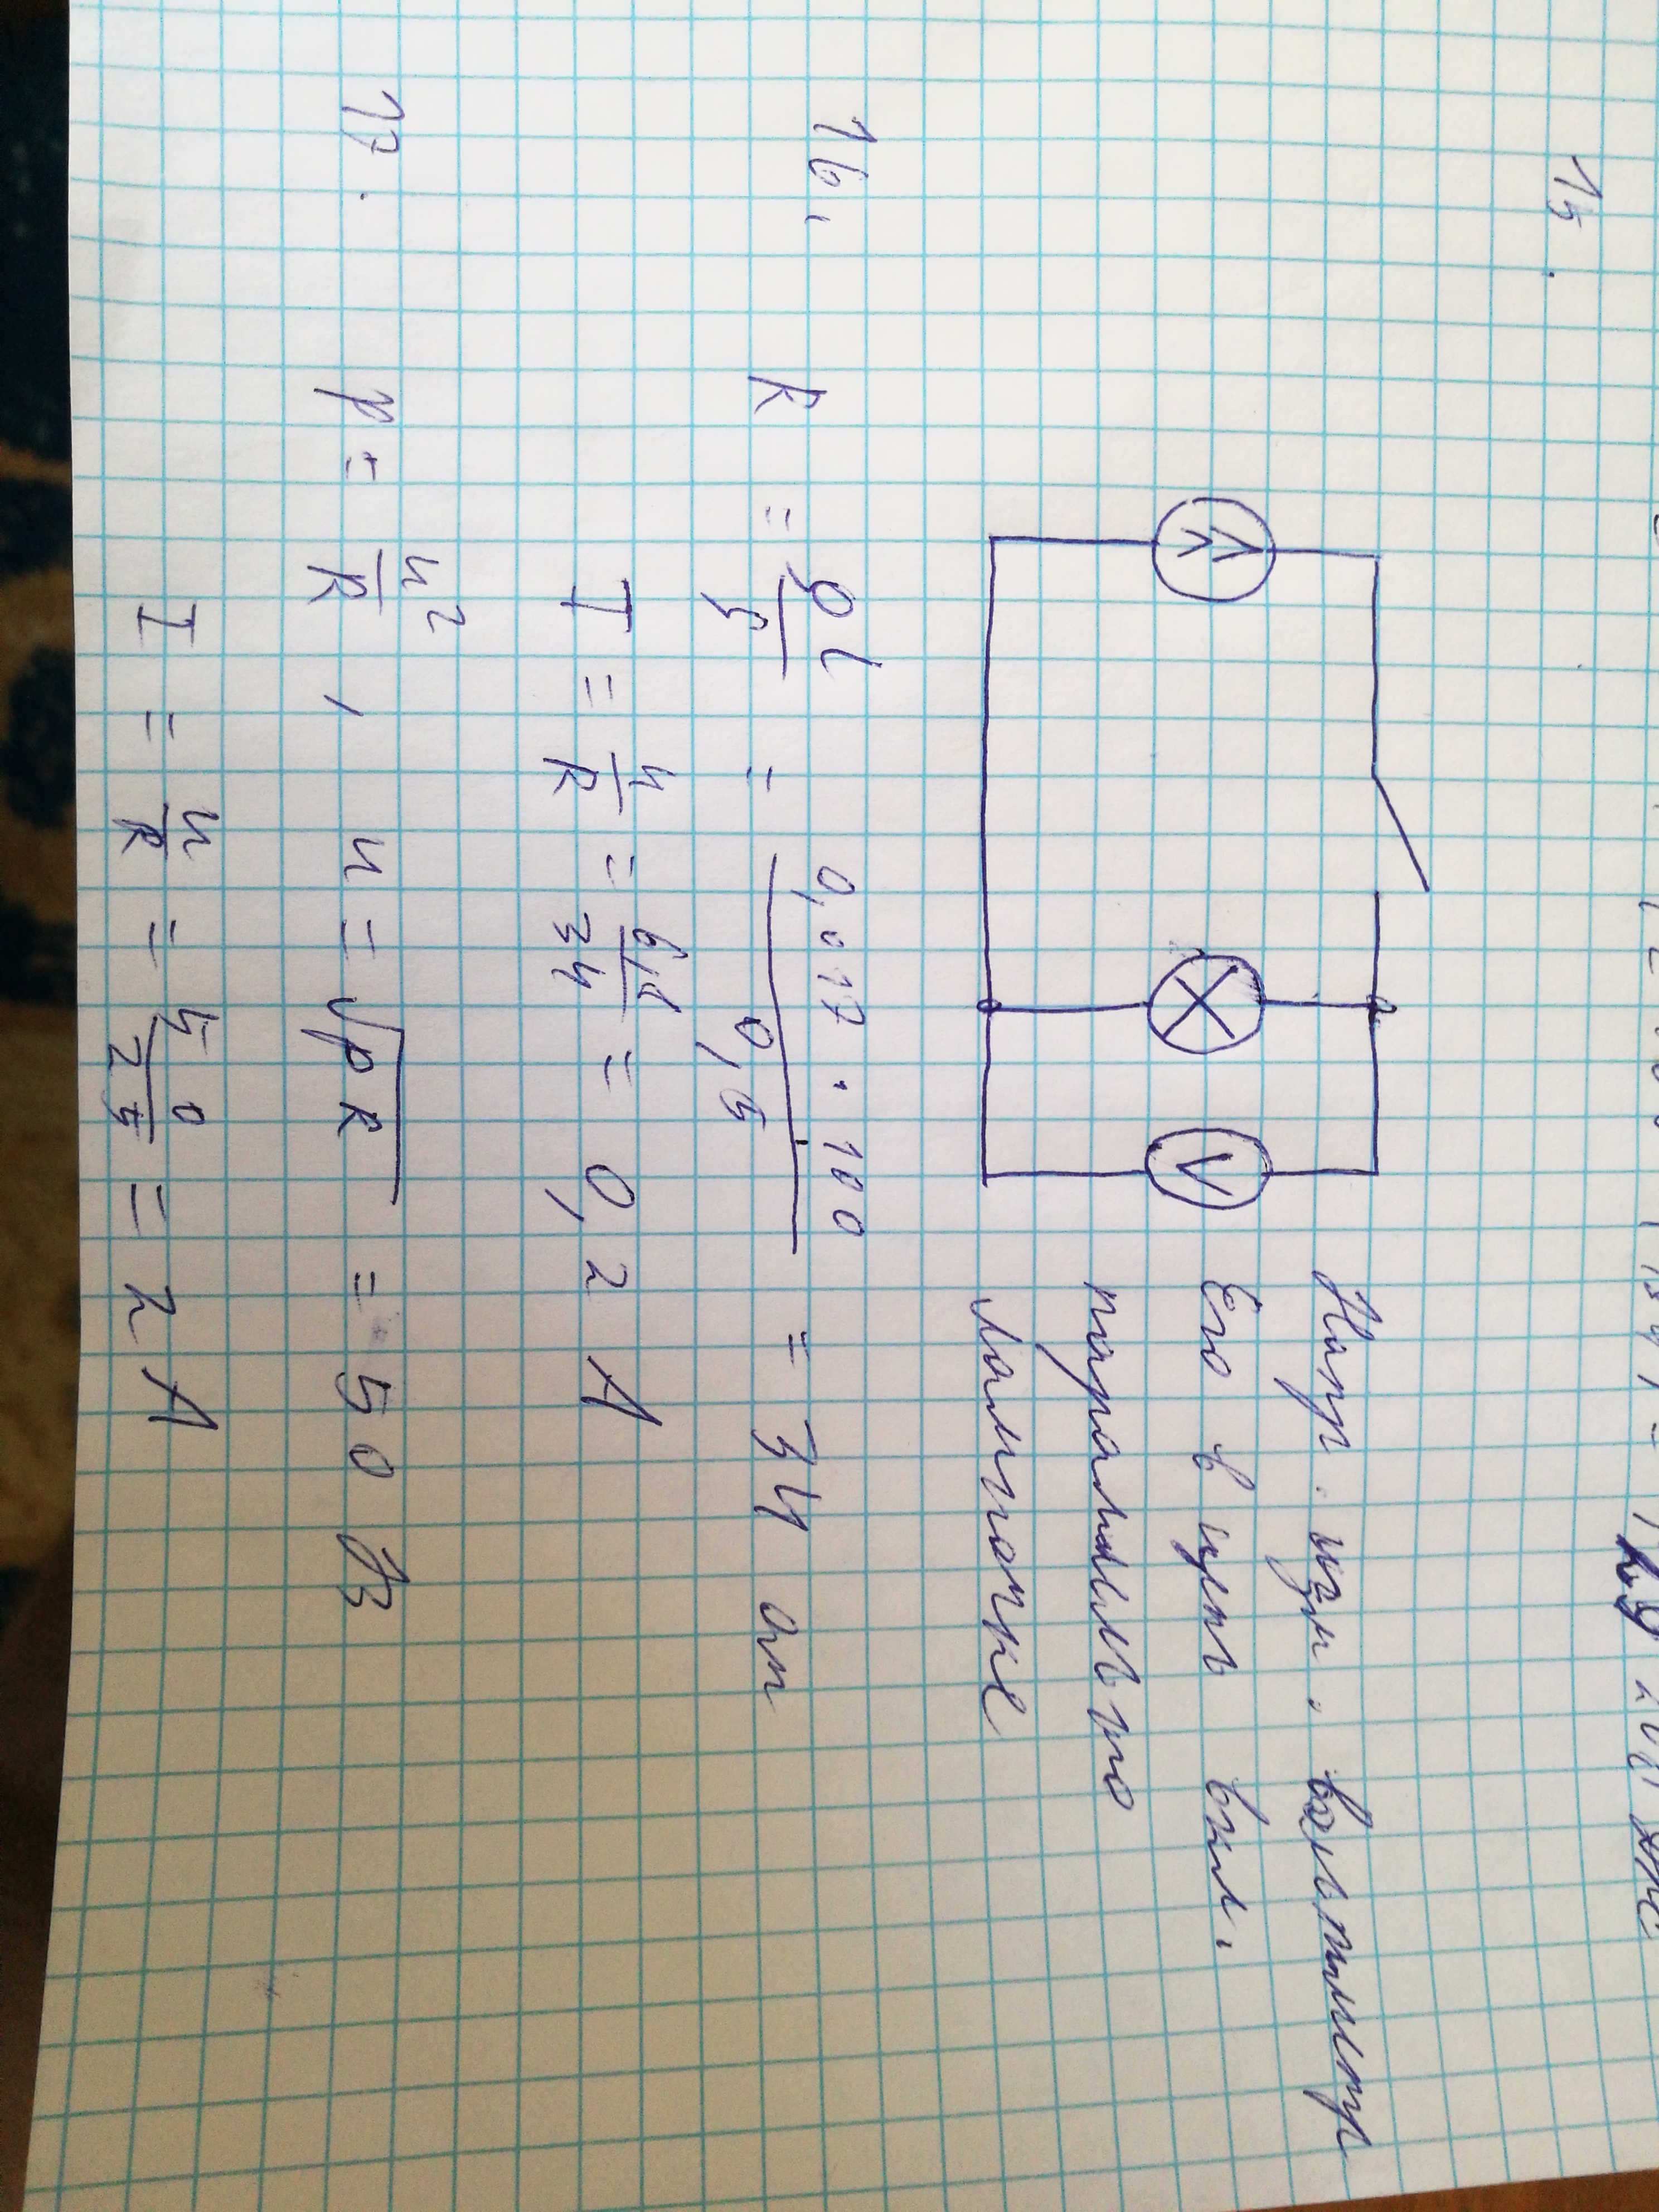 15.
V
Напр. изм. вольтметр
Его в цепь вкл.
параллельно
лампочке
16.
R = ρl/S = 0,017 · 100/0,5 = 34 Ом
I = U/R = 6,8/34 = 0,2 А
17.
P = U²/R , U = √PR = 50 В
I = U/R = 50/25 = 2 А